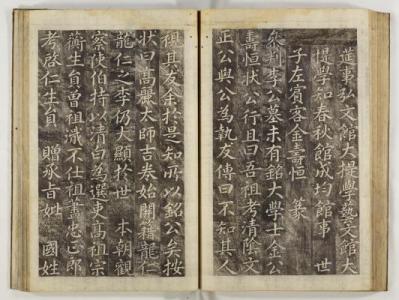 進事弘文館大提學藝文館大
提學知春秋館成均館事 世
子左賓客金壽恒 篆
參判李公墓未有銘大學士金公
壽恒狀公行且曰吾祖考清陰文
正公與公為執友傳曰不知其人
視其友余於是知所以銘公矣按
狀曰高麗太師吉卷始開籍龍仁
龍仁之李仍大顯於世 本朝觀
察使伯持以清白為選吏高祖宗
衡生員曾祖 不仕祖藎忠正郎
考啓仁生員 贈承旨妣 國姓